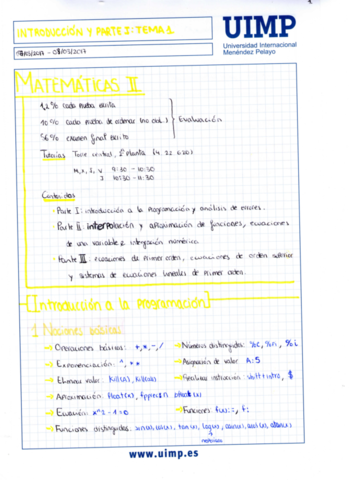 INTRODUCCIÓN Y PARTE I: TEMA 1
UIMP
Universidad Internacional
Menéndez Pelayo
MATEMÁTICAS II
12% cada prueba escrita
10% cada prueba de ordenador
Evaluación
56% examen final escrito
Tutorías
Torre central, 1ª planta
9:30 - 10:30
10:30 - 11:30
Contenidos
Parte I: introducción a la Programación y análisis de errores.
Parte II: interpolación y aproximación de funciones, ecuaciones
de una variable e integración numérica.
Parte III: ecuaciones de Primer orden, ecuaciones de orden superior
y sistemas de ecuaciones lineales de Primer orden.
[Introducción a la Programación]
1 Nociones básicas
→ Operaciones básicas: +,*,-,/
→ Números distinguidos: %e, %pi, %i
→ Exponenciación: ^, **
→ Asignación de valor: A:5
→ Eliminar valor: kill(a), kill(all)
→ Finalizar instrucción: shift+intro, $
→ Aproximación: float(x),
→ Ecuación: x^2-1=0
→ Funciones: f(x):=
→ Funciones distinguidas: sin(x), cos(x), tan(x), log(x),
www.uimp.es